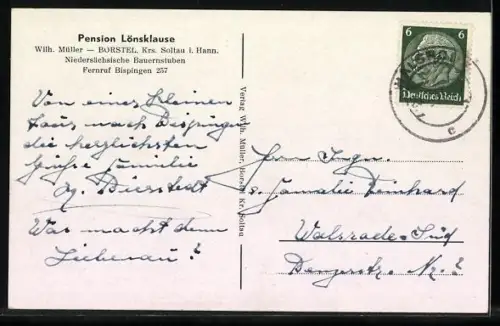 Pension Lönsklause
Wilh. Müller — BORSTEL, Krs. Soltau i. Hann.
Niedersächsische Bauernstuben
Fernruf Bispingen 257
Von einer kleinen
nach Bispingen
die herzlichsten
Grüße Familie
Was macht denn
Liebenau?
Verlag Wilh. Müller, Borstel Kr. Soltau
6 6
Deutsches Reich
Herrn Ingn.
Familie Reinhard
Walsrode-Süd